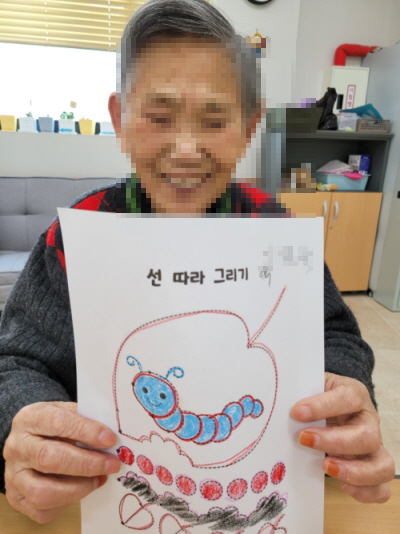 선 따라 그리기